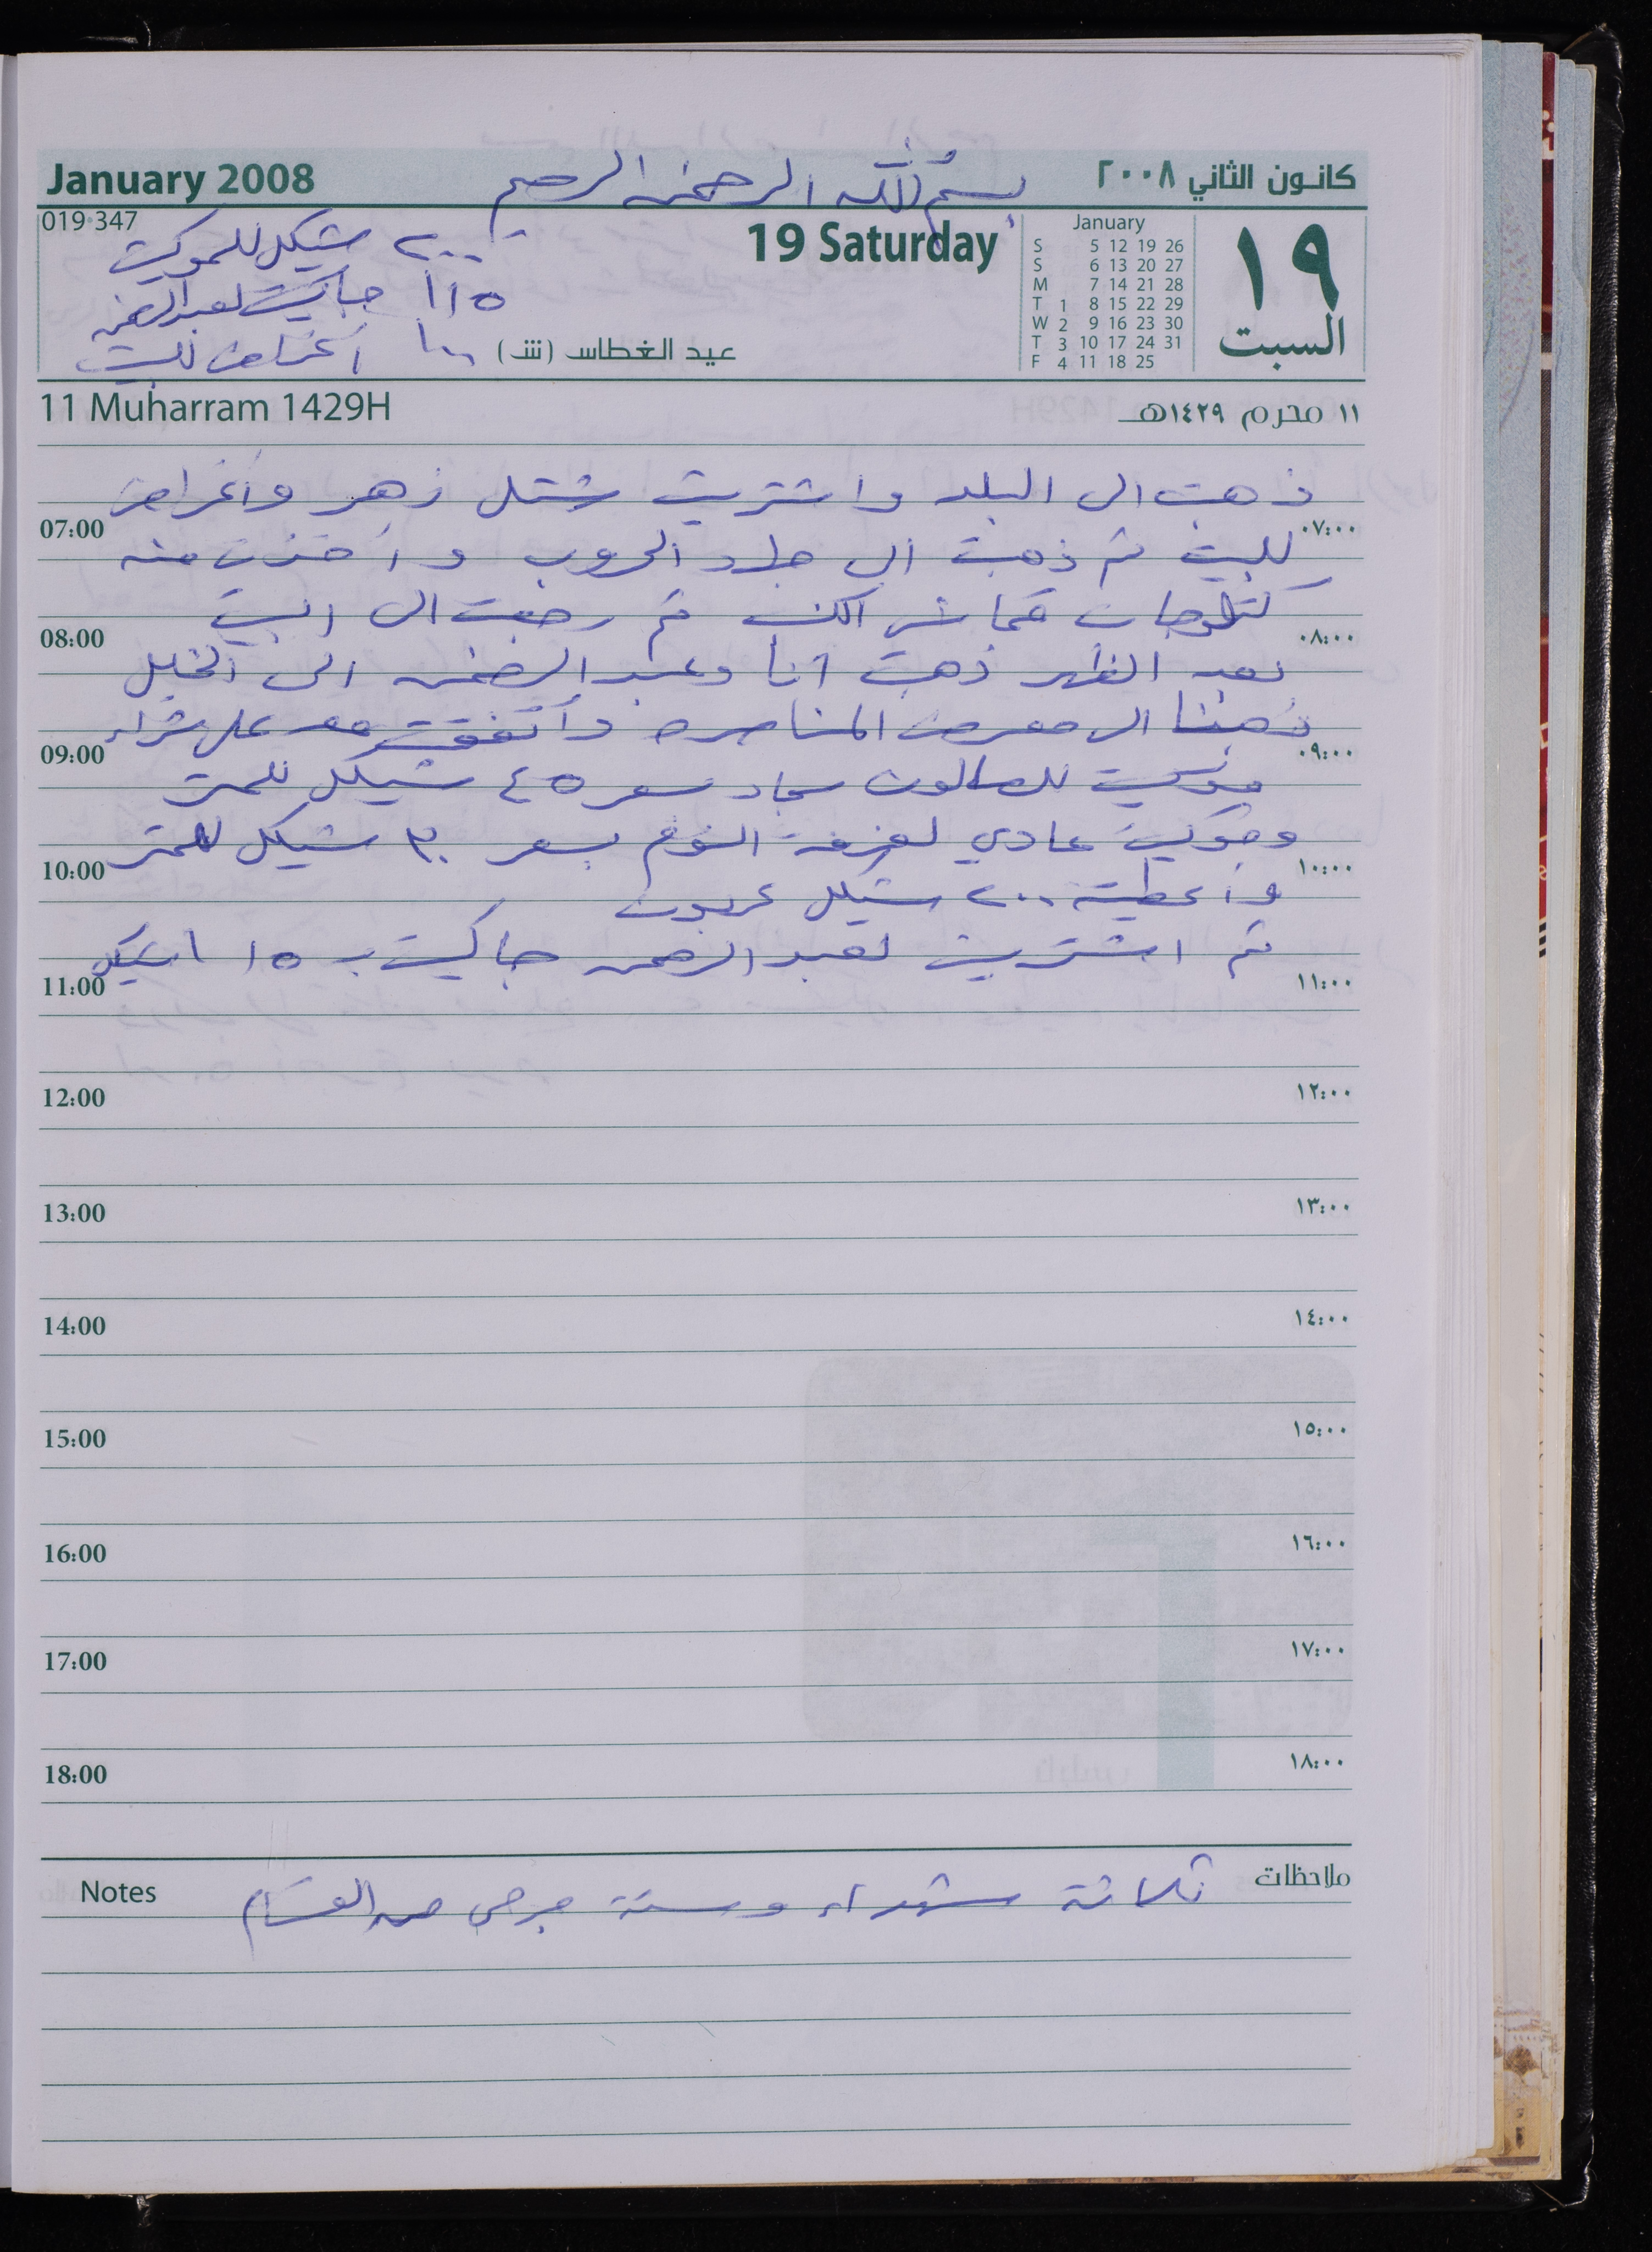 بسم الله الرحمن الرحيم
January 2008
كانون الثاني ٢٠٠٨
019·347
19 Saturday
January
S 5 12 19 26
S 6 13 20 27
M 7 14 21 28
T 1 8 15 22 29
W 2 9 16 23 30
T 3 10 17 24 31
F 4 11 18 25
١٩
السبت
٢٠٠ شيكل للموكيت
١١٥ جاكيت لعبد الرحمن
١٠٠ أغراض للبيت
عيد الغطاس (ش)
11 Muharram 1429H
١١ محرم ١٤٢٩هـ
ذهبت الى البلد واشتريت شتل زهر وأغراض
07:00 ٠٧:٠٠
للبيت ثم ذهبت الى الحروب و أخذت منه
كتلوجات قماش الكنب ثم رجعت الى البيت
08:00 ٠٨:٠٠
بعد الظهر ذهبت أنا وعبد الرحمن الى الخليل
ذهبنا الى معرض المناصره وأتفقت معه على شراء
09:00 ٠٩:٠٠
موكيت للصالون سجاد سعر ٤٥ شيكل للمتر
وموكيت عادي لغرفة النوم بسعر ٣٠ شيكل للمتر
10:00 ١٠:٠٠
وأعطيته ٢٠٠ شيكل عربون
ثم اشتريت لعبد الرحمن جاكيت ب ١١٥ شيكل
11:00 ١١:٠٠
12:00 ١٢:٠٠
13:00 ١٣:٠٠
14:00 ١٤:٠٠
15:00 ١٥:٠٠
16:00 ١٦:٠٠
17:00 ١٧:٠٠
18:00 ١٨:٠٠
Notes
ملاحظات
ثلاثة شهداء وستة جرحى من القسام